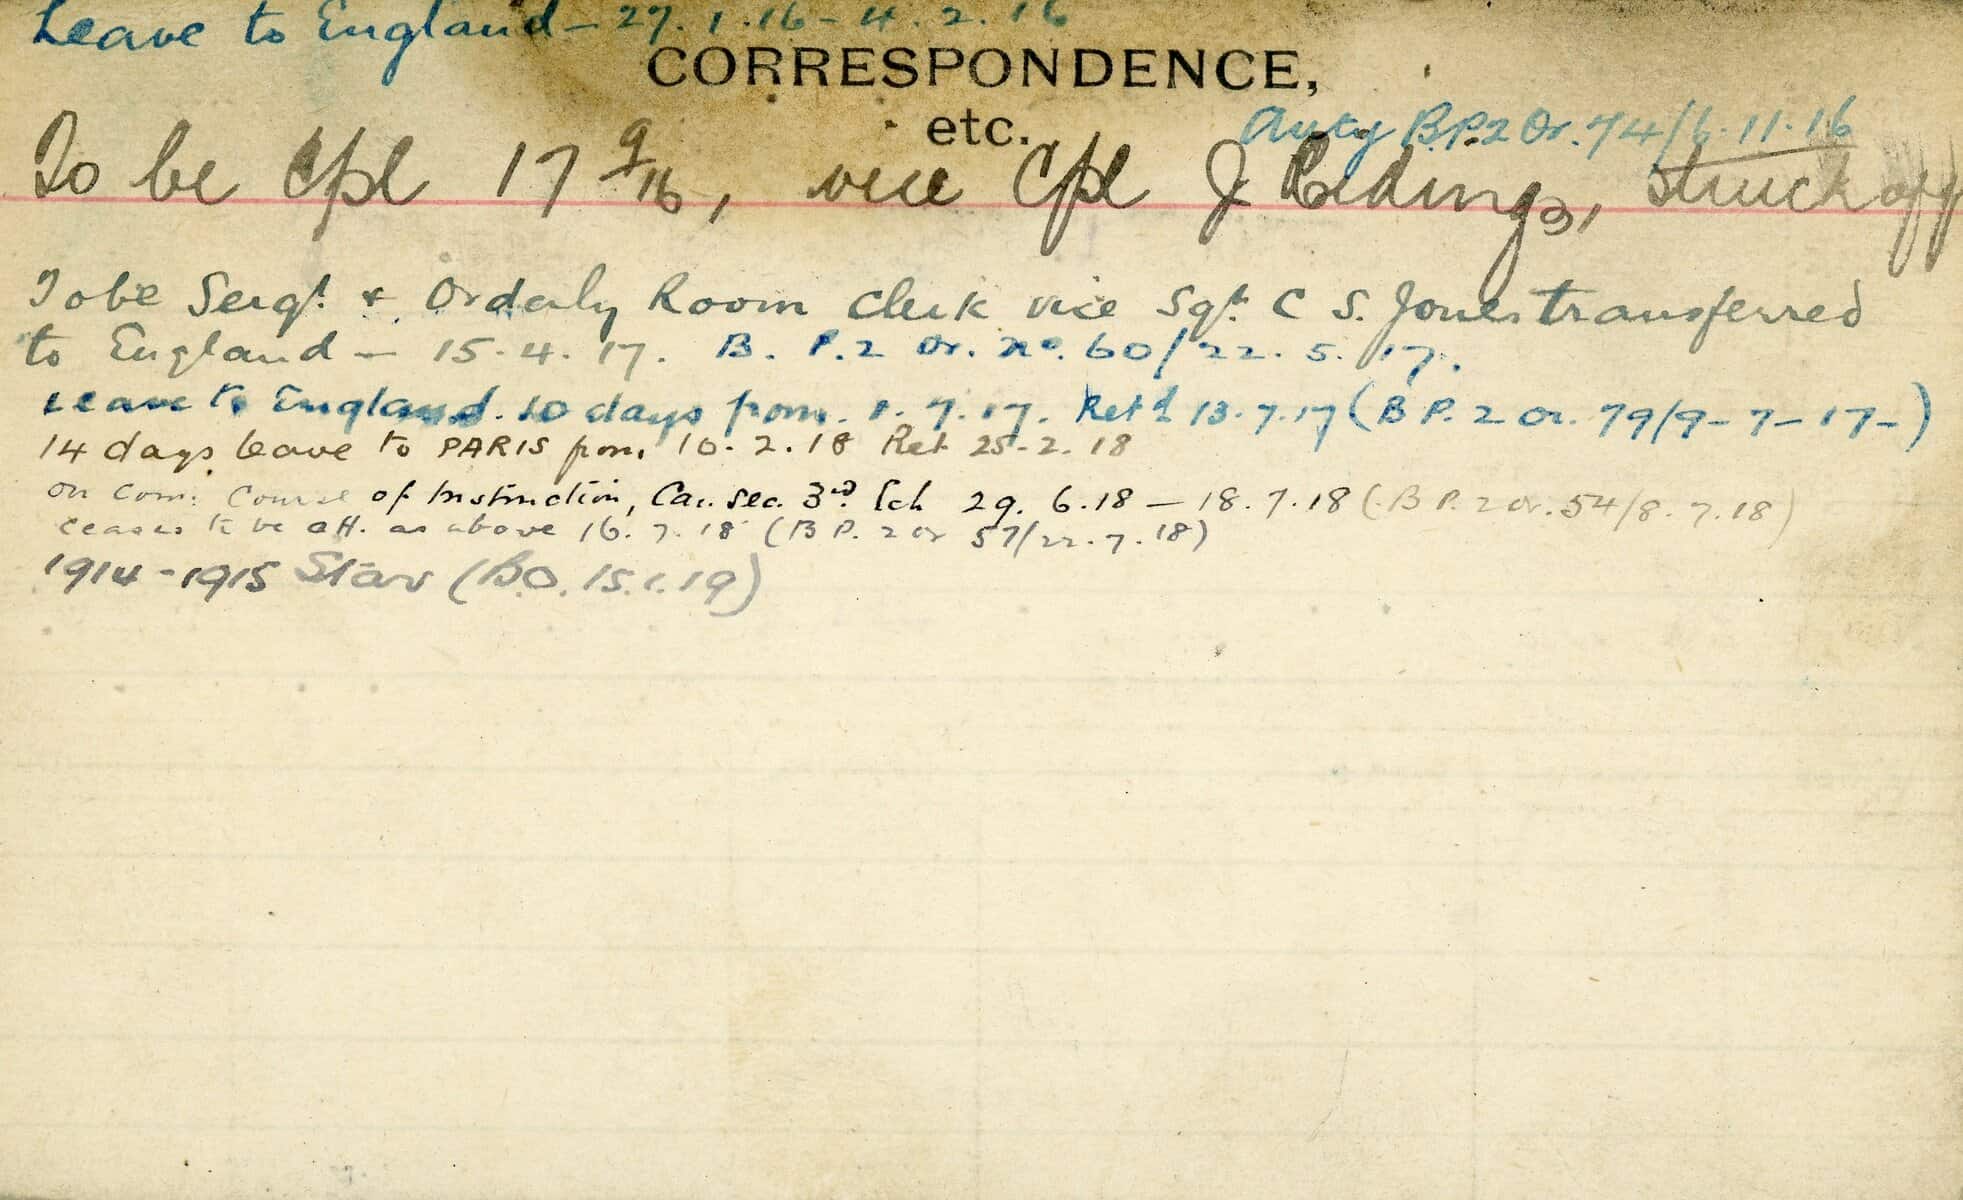 Leave to England - 27.1.16 - 4.2.16
CORRESPONDENCE,
etc.
Auty B.P.2 Or. 74/6.11.16
To be Cpl 17 9/16, vice Cpl J Redings, struck off
To be Sergt & Orderly Room Clerk vice Sgt. C S. Jones transferred
to England - 15.4.17. B. P.2 Or. No. 60/22.5.17.
Leave to England. 10 days from 1.7.17. Ret'd 13.7.17 (B P. 2 Or. 79/9-7-17-)
14 days leave to PARIS from 10.2.18 Ret 25.2.18
on Com: Course of Instruction, Can. Sec. 3rd Ech 29.6.18 - 18.7.18 (B P. 2 Or. 54/8.7.18)
ceases to be att. as above 16.7.18 (B P. 2 Or 57/22.7.18)
1914-1915 Star (B.O. 15.1.19)